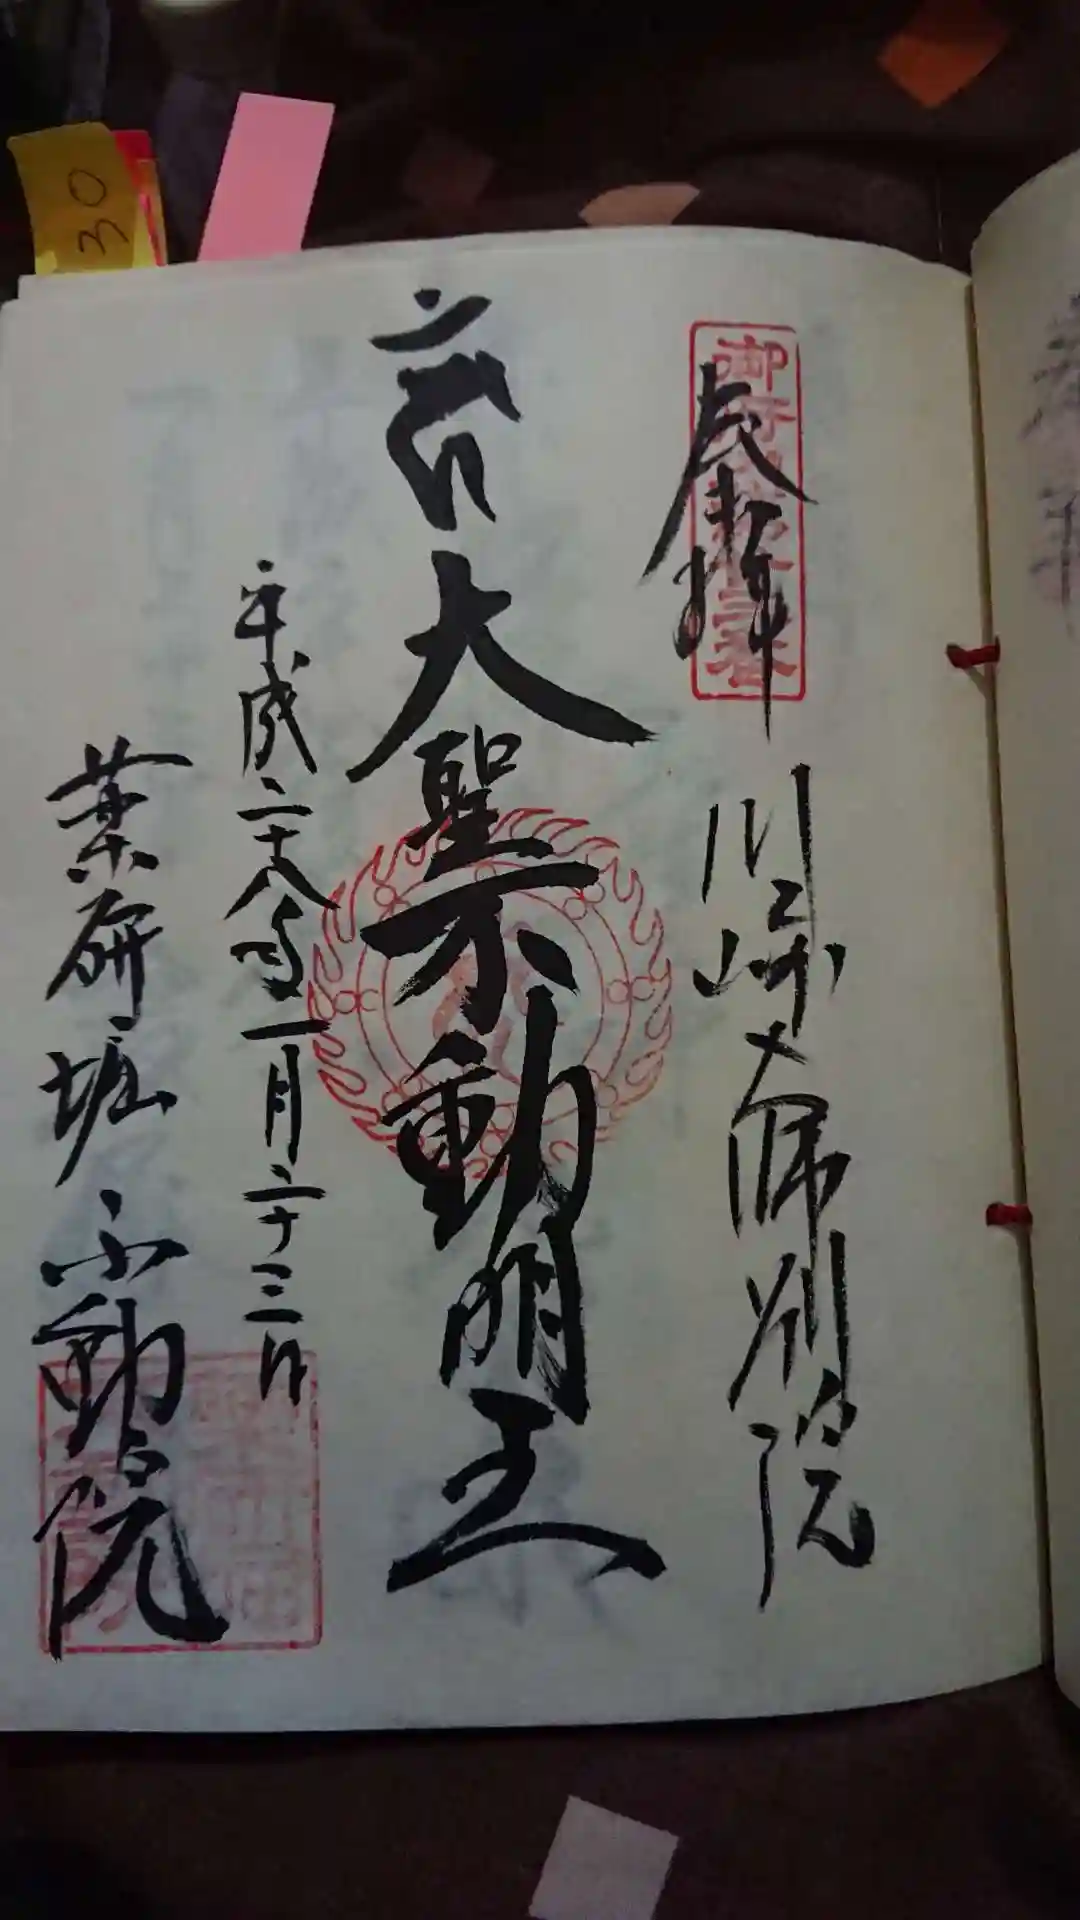 奉拝 川崎大師別院
大聖不動明王
平成二十八年一月二十三日
薬研堀 不動院
30